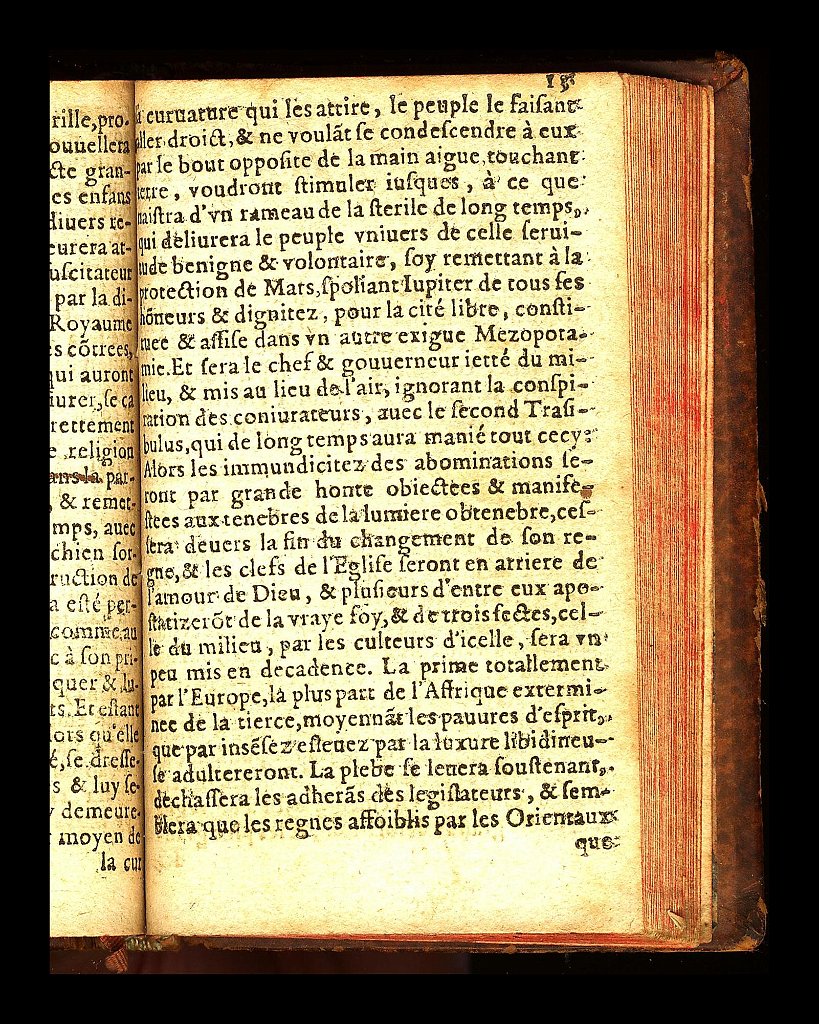 rille,pro-
ouuellera
cte gran-
es enfans
diuers re-
eurera at-
uscitateur
par la di-
Royaume
s cõtrees,
qui auront
iurer,se ça
rettement
e religion
ans la par-
, & remet-
mps, auec
chien sor-
ruction de
a esté per-
comme au
c à son pri-
quer & lu-
ts. Et estant
lors qu'elle
é,se dresse-
s & luy se-
y demeure-
moyen de
la cur
18
a curuature qui les attire, le peuple le faisant
aller droict, & ne voulãt se condescendre à eux
par le bout opposite de la main aigue,touchant
terre, voudront stimuler iusques, à ce que
naistra d'vn rameau de la sterile de long temps,
qui deliurera le peuple vniuers de celle serui-
tude benigne & volontaire, soy remettant à la
protection de Mars,spoliant Iupiter de tous ses
hõneurs & dignitez, pour la cité libre, consti-
tuee & assise dans vn autre exigue Mezopota-
mie. Et sera le chef & gouuerneur ietté du mi-
lieu, & mis au lieu de l'air, ignorant la conspi-
ration des coniurateurs, auec le second Trasi-
bulus,qui de long temps aura manié tout cecy:
Alors les immundicitez des abominations se-
ront par grande honte obiectees & manife-
stees aux tenebres de la lumiere obtenebre,ces-
sera deuers la fin du changement de son re-
gne,& les clefs de l'Eglise seront en arriere de
l'amour de Dieu, & plusieurs d'entre eux apo-
statizerõt de la vraye foy,& de trois sectes,cel-
le du milieu, par les culteurs d'icelle, sera vn
peu mis en decadence. La prime totallement
par l'Europe,la plus part de l'Affrique extermi-
nee de la tierce,moyennãt les pauures d'esprit,
que par insẽsez esleuez par la luxure libidineu-
se adultereront. La plebe se leuera soustenant,
dechassera les adherãs des legislateurs, & sem-
blera que les regnes affoiblis par les Orientaux
que